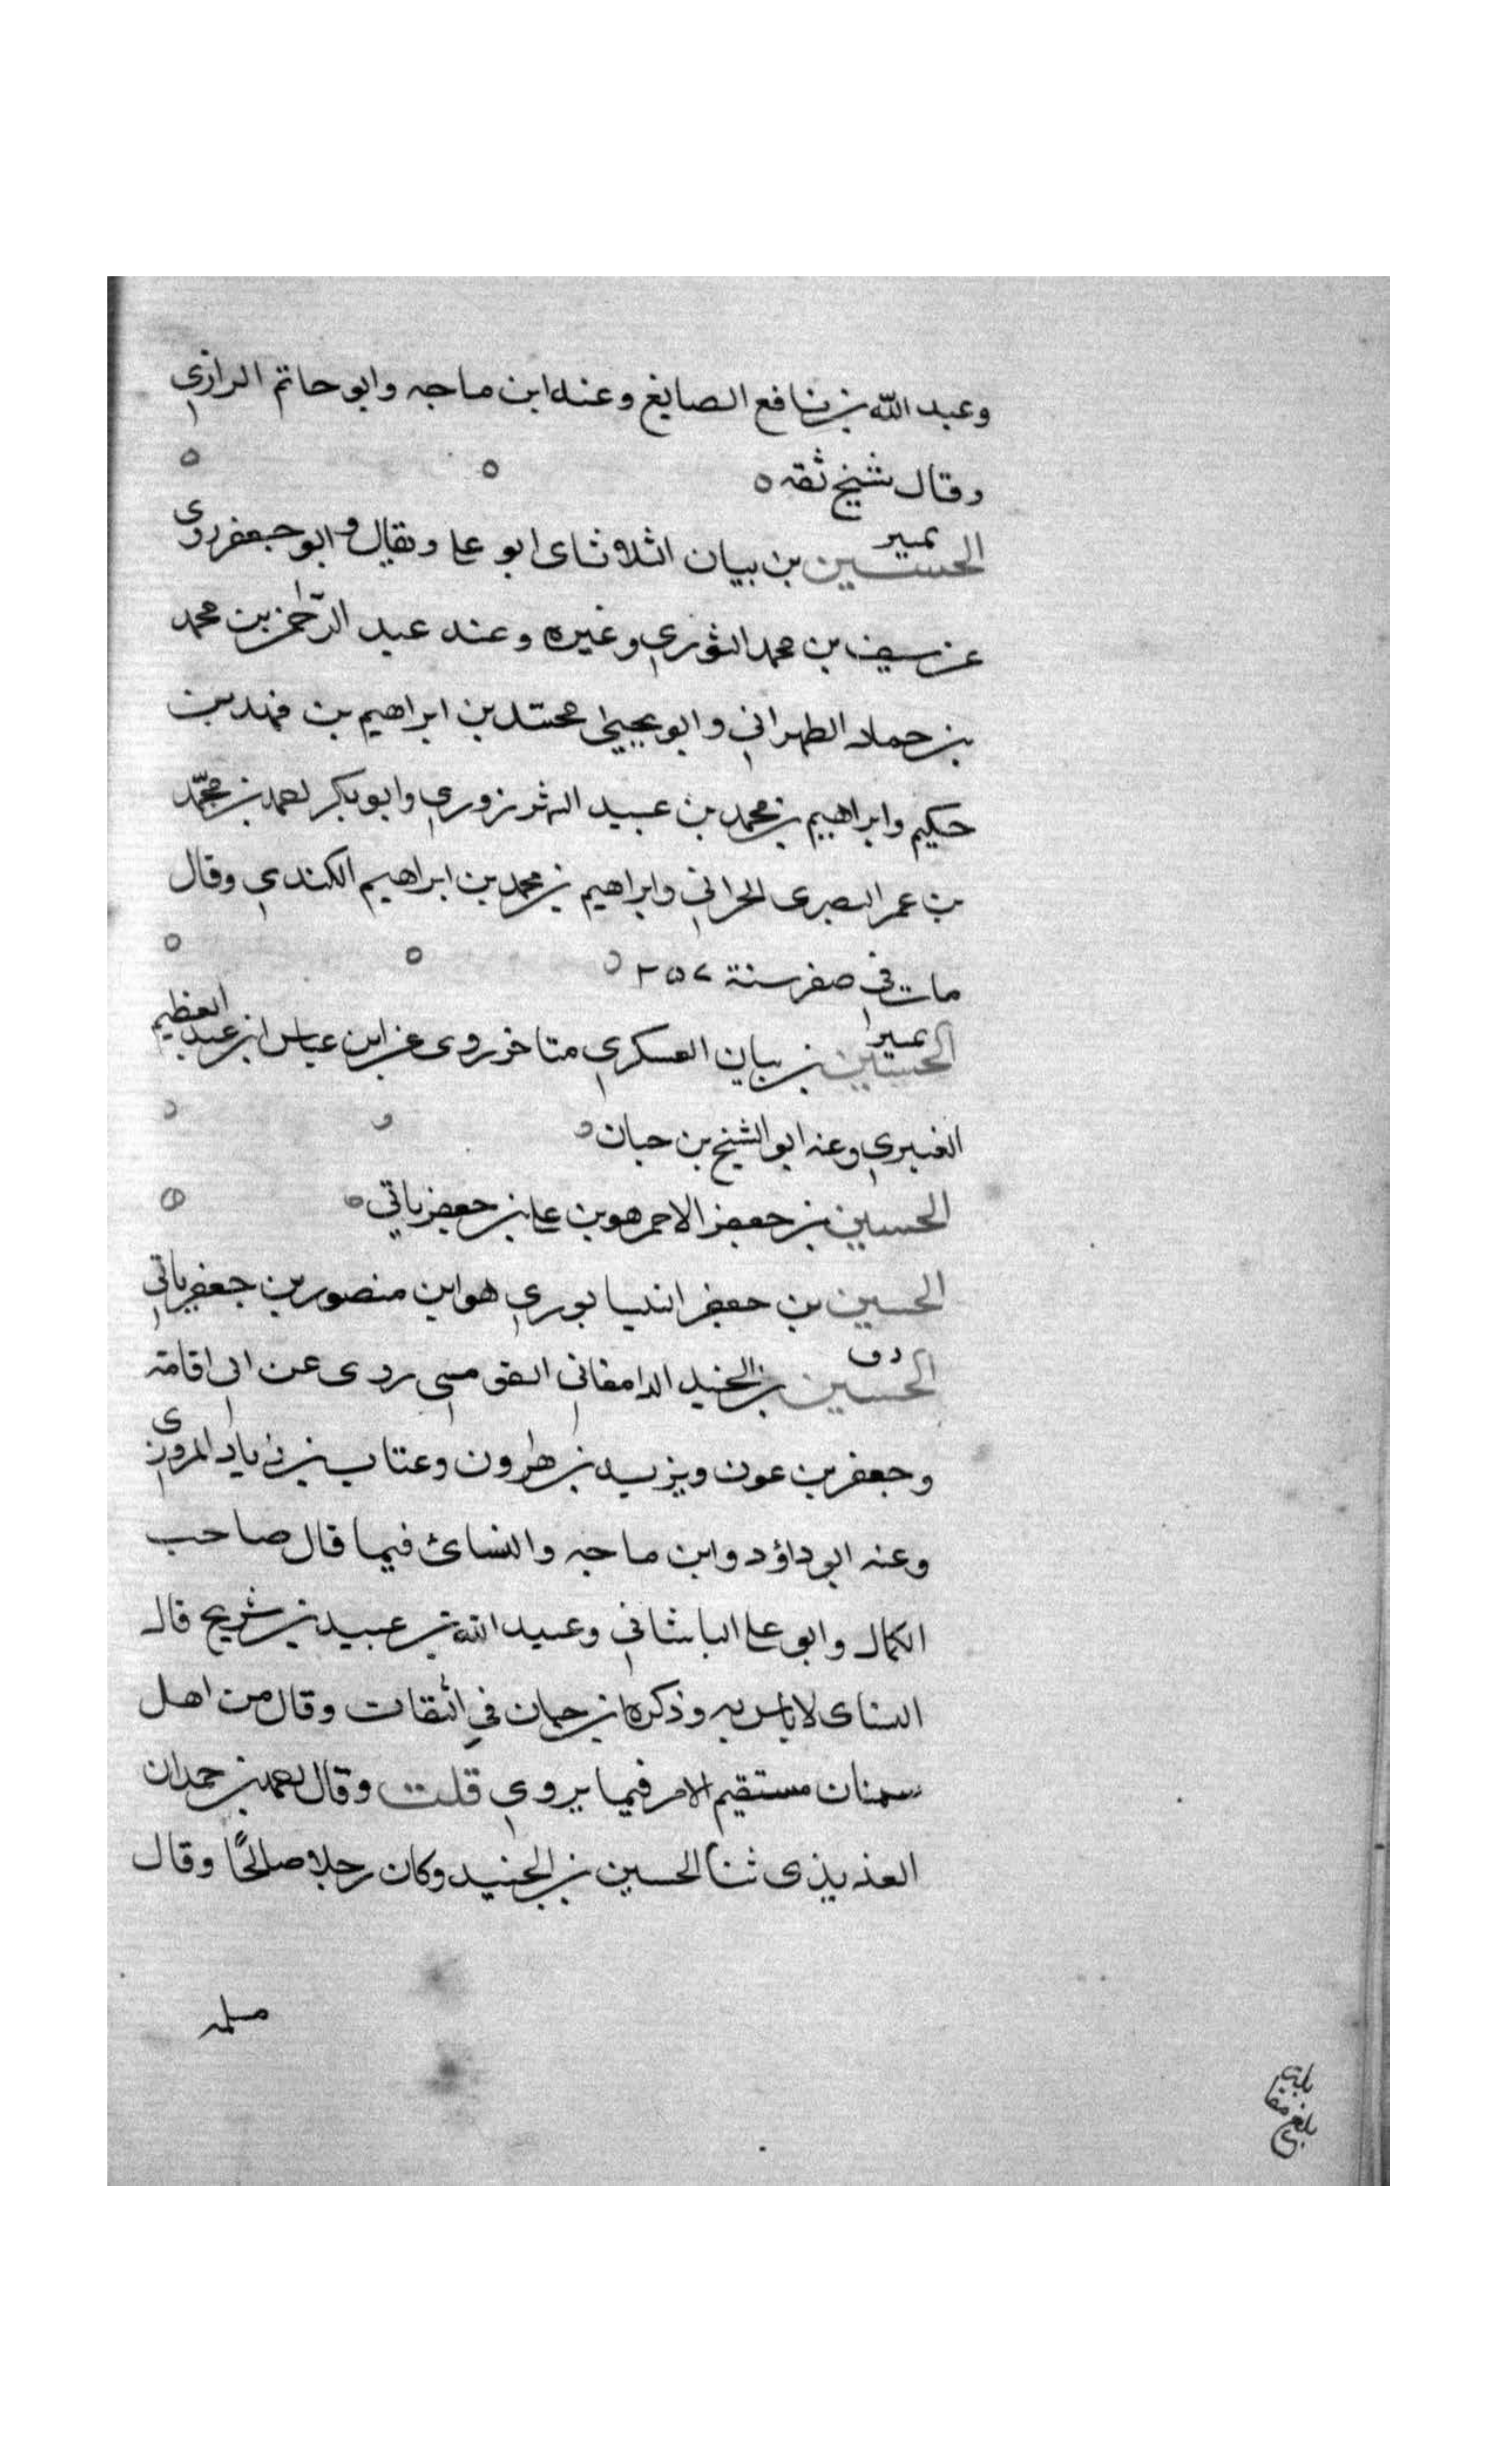 وعبد الله بن نافع الصايغ وعنه ابن ماجه وابو حاتم الرازي
وقال شيخ ثقه ه
تمييز
الحسين بن بيان الثلاثاى ابو على ويقال ابو جعفر روى
عن سيف بن محمد الثوري وغيره وعنه عبد الرحمن بن محمد
بن حماد الطهراني وابو يحيى محمد بن ابراهيم بن فهد بن
حكيم وابراهيم بن محمد بن عبيد الشهرزوري وابو بكر احمد بن محمد
بن عمر البصرى الحراني وابراهيم بن محمد بن ابراهيم الكندي وقال
مات في صفر سنة ٢٥٧
تمييز
الحسين بن بيان العسكري متاخر روى عن ابن عباس ابن عبد العظيم
العنبري وعنه ابو الشيخ بن حبان
الحسين بن جعفر الاحمر هو بن على بن جعفر ياتي
الحسين بن جعفر النيسابوري هو ابن منصور بن جعفر ياتي
د ق
الحسين بن الجنيد الدامغاني القومسي روى عن ابي اقامة
وجعفر بن عون ويزيد بن هارون وعتاب بن زياد المروزي
وعنه ابو داؤد وابن ماجه والنسائ فيما قال صاحب
الكمال وابو على الباشاني وعبيد الله بن عبيد بن شريح قال
النساى لا باس به وذكره ابن حبان في الثقات وقال من اهل
سمنان مستقيم الامر فيما يروي قلت وقال احمد بن حمدان
العذيذى ثنا الحسين بن الجنيد وكان رجلا صالحًا وقال
مسلمه